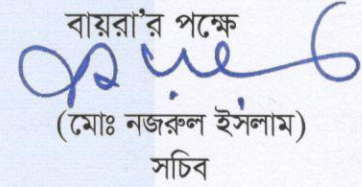 বায়রা'র পক্ষে
(মোঃ নজরুল ইসলাম)
সচিব